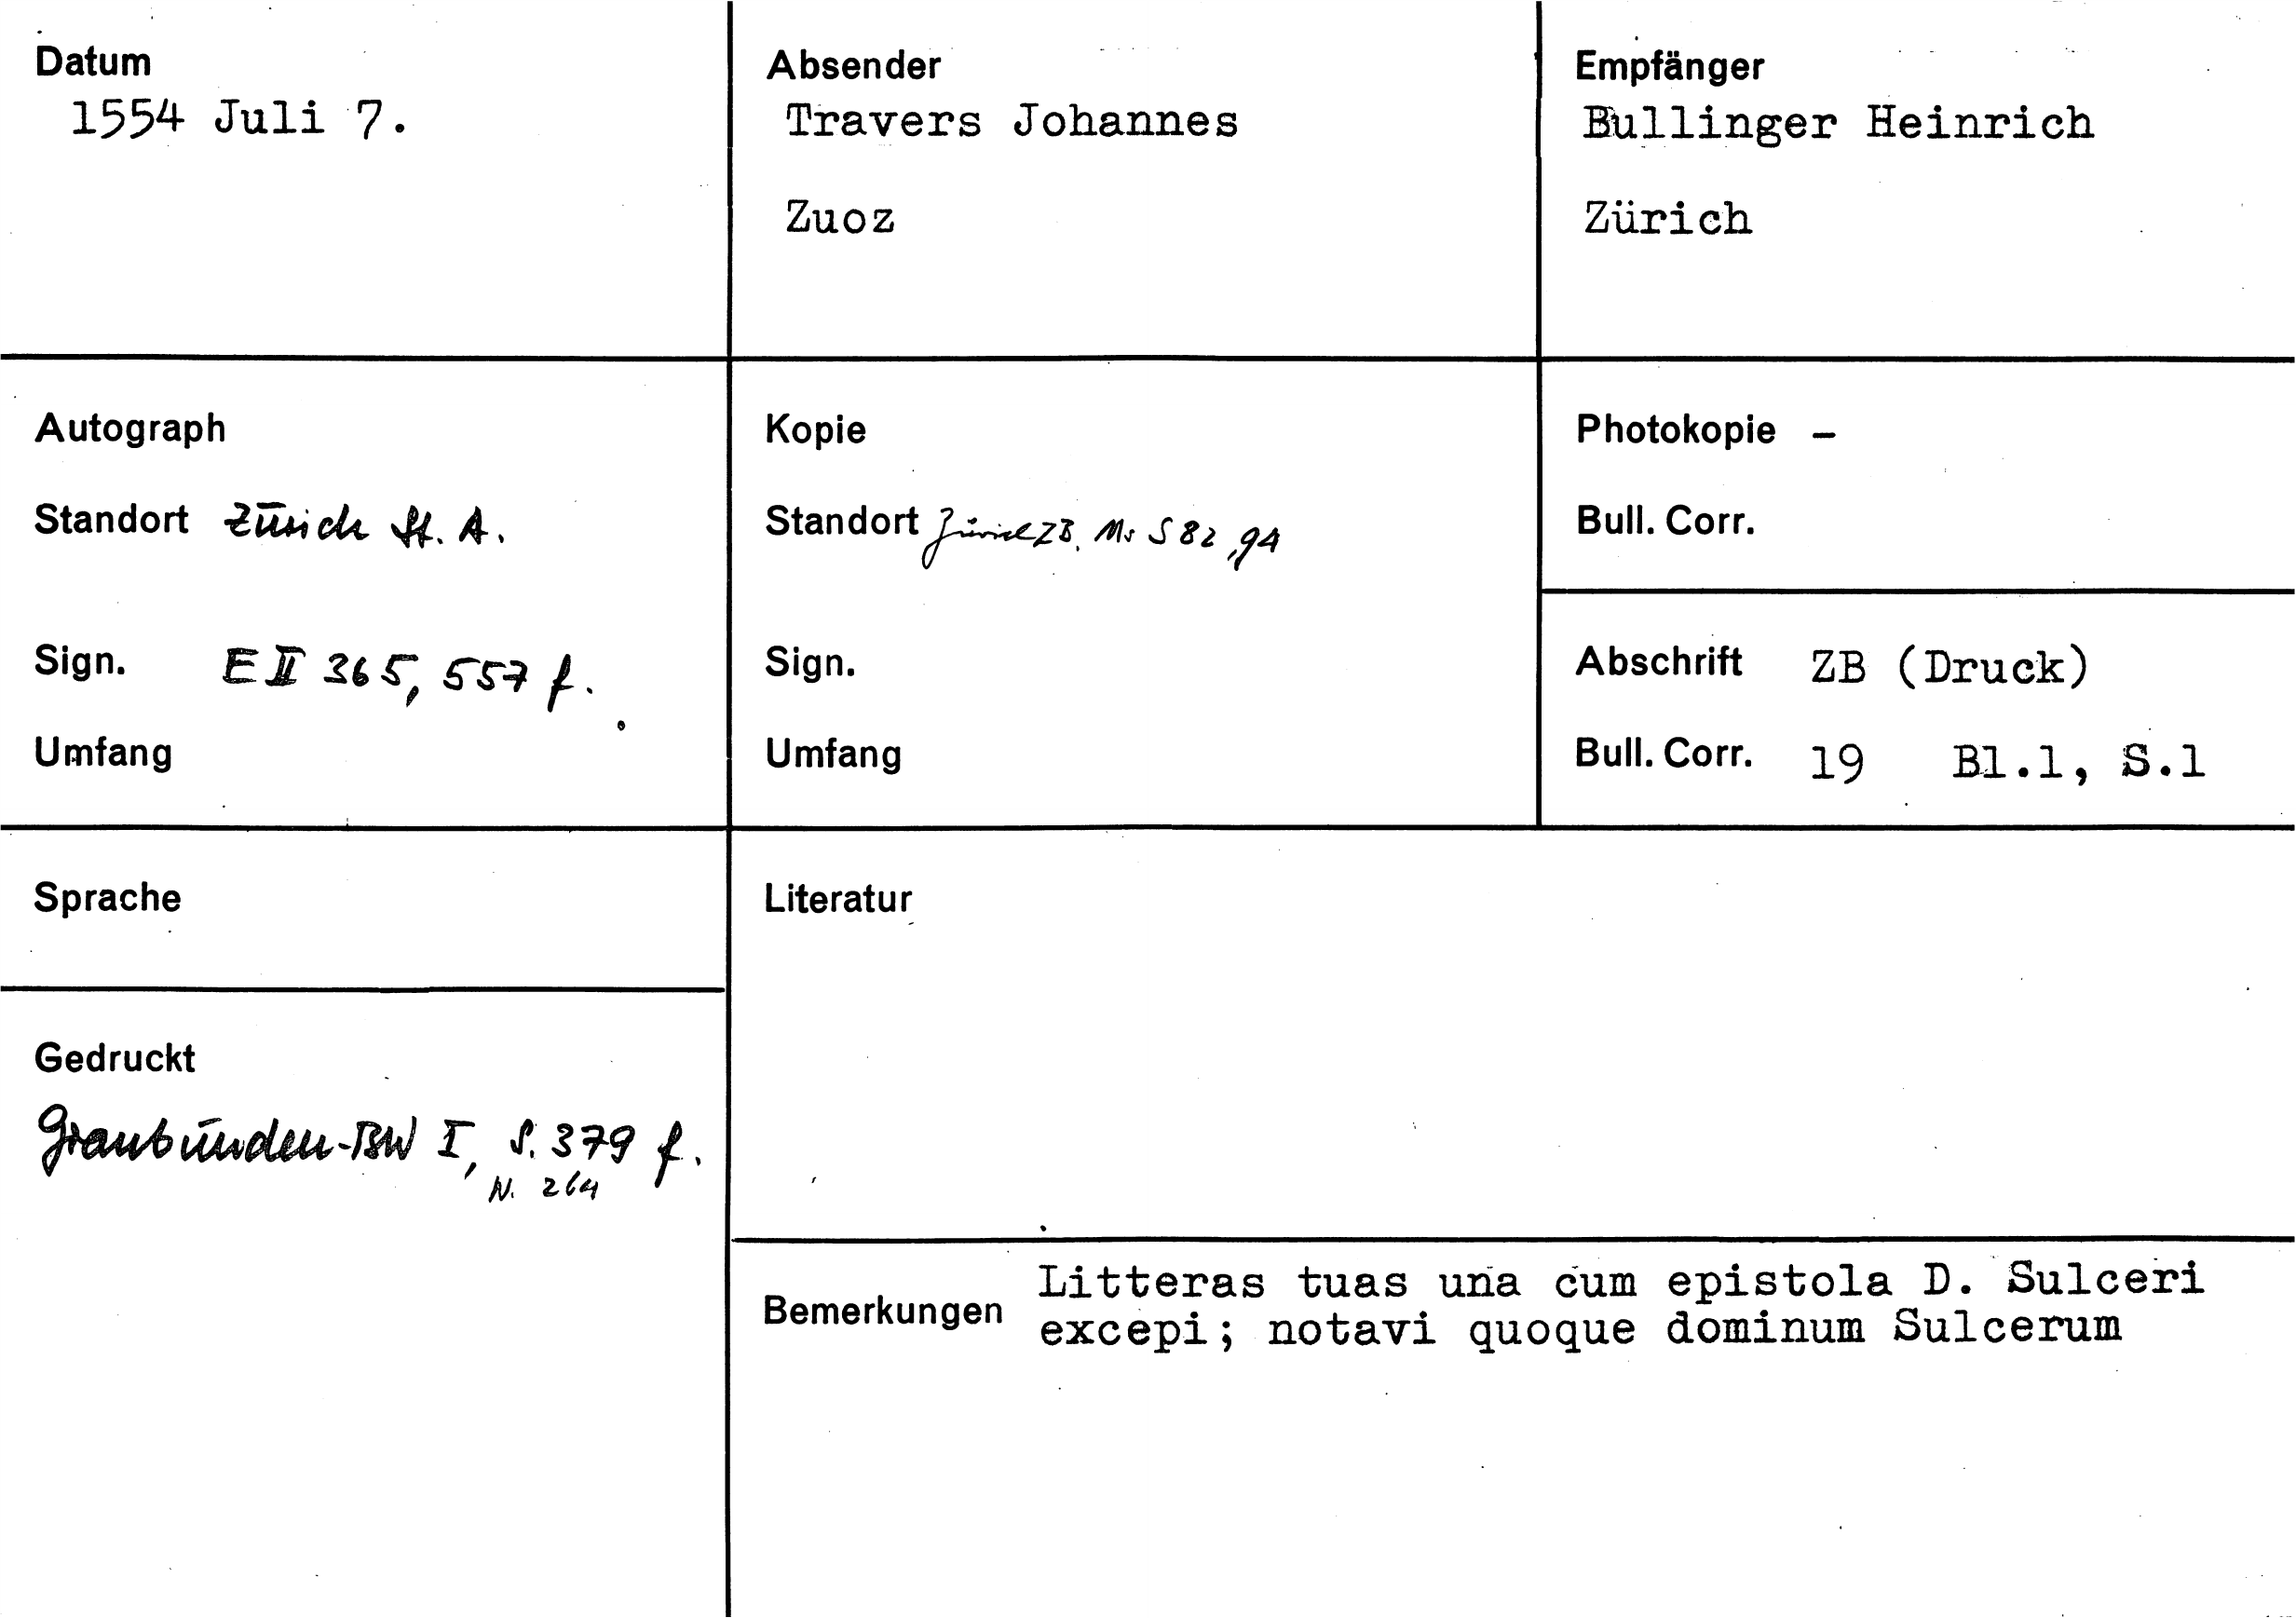 Datum
1554 Juli 7.
Absender
Travers Johannes
Zuoz
Empfänger
Bullinger Heinrich
Zürich
Autograph
Standort Zürich St. A.
Sign. E II 365, 557 f.
Umfang
Kopie
Standort Zürich ZB, Ms S 82, 94
Sign.
Umfang
Photokopie –
Bull. Corr.
Abschrift ZB (Druck)
Bull. Corr. 19 Bl.1, S.1
Sprache
Gedruckt
Graubünden-BW I, S. 379 f.
N. 264
Literatur
Bemerkungen Litteras tuas una cum epistola D. Sulceri
excepi; notavi quoque dominum Sulcerum